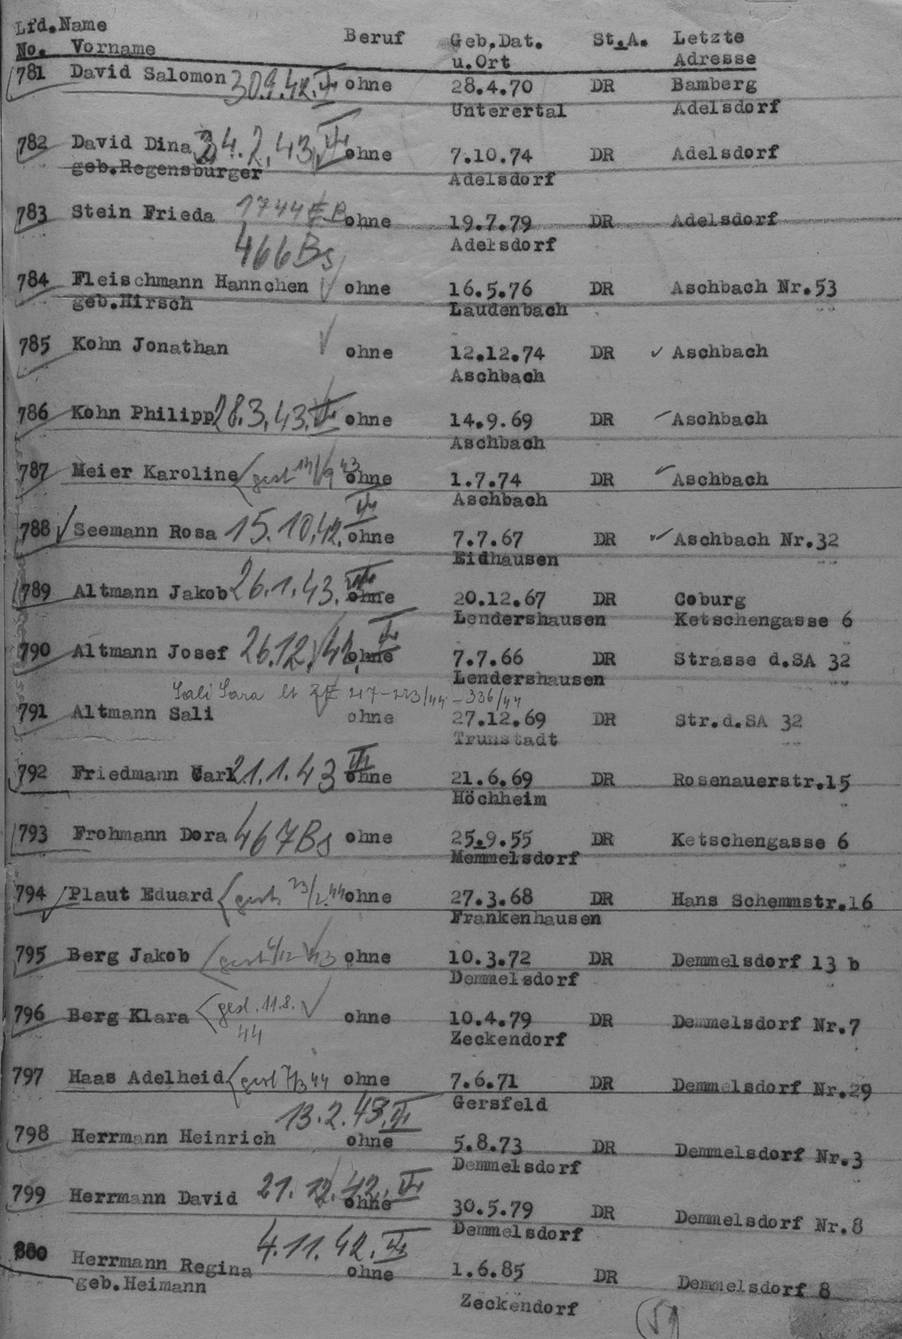 Lfd. Name Beruf Geb.Dat. St.A. Letzte
No. Vorname u.Ort Adresse
781 David Salomon 30.9.42. ohne 28.4.70 DR Bamberg
Unterertal Adelsdorf
782 David Dina 24.2.43. ohne 7.10.74 DR Adelsdorf
geb.Regensburger Adelsdorf
783 Stein Frieda 1744 ohne 19.7.79 DR Adelsdorf
466 Bs Adelsdorf
784 Fleischmann Hannchen ohne 16.5.76 DR Aschbach Nr.53
geb.Hirsch Laudenbach
785 Kohn Jonathan ohne 12.12.74 DR Aschbach
Aschbach
786 Kohn Philipp 28.3.43. ohne 14.9.69 DR Aschbach
Aschbach
787 Meier Karoline gest ohne 1.7.74 DR Aschbach
Aschbach
788 Seemann Rosa 15.10.42. ohne 7.7.67 DR Aschbach Nr.32
Eidhausen
789 Altmann Jakob 26.1.43. ohne 20.12.67 DR Coburg
Lendershausen Ketschengasse 6
790 Altmann Josef 26.12. ohne 7.7.66 DR Strasse d.SA 32
Lendershausen
Sali Sara
791 Altmann Sali ohne 27.12.69 DR Str.d.SA 32
Trunstadt
792 Friedmann Carl 21.1.43 ohne 21.6.69 DR Rosenauerstr.15
Höchheim
793 Frohmann Dora 467 Bs ohne 25.9.55 DR Ketschengasse 6
Memmelsdorf
794 Plaut Eduard gest. 23/2.44 ohne 27.3.68 DR Hans Schemmstr.16
Frankenhausen
795 Berg Jakob gest ohne 10.3.72 DR Demmelsdorf 13 b
Demmelsdorf
796 Berg Klara gest. 11.8. ohne 10.4.79 DR Demmelsdorf Nr.7
44 Zeckendorf
797 Haas Adelheid gest 7/3 44 ohne 7.6.71 DR Demmelsdorf Nr.29
Gersfeld
798 Herrmann Heinrich 13.2.43. ohne 5.8.73 DR Demmelsdorf Nr.3
Demmelsdorf
799 Herrmann David 21.12.42. ohne 30.5.79 DR Demmelsdorf Nr.8
Demmelsdorf
800 Herrmann Regina 4.11.42. ohne 1.6.85 DR Demmelsdorf 8
geb.Heimann Zeckendorf